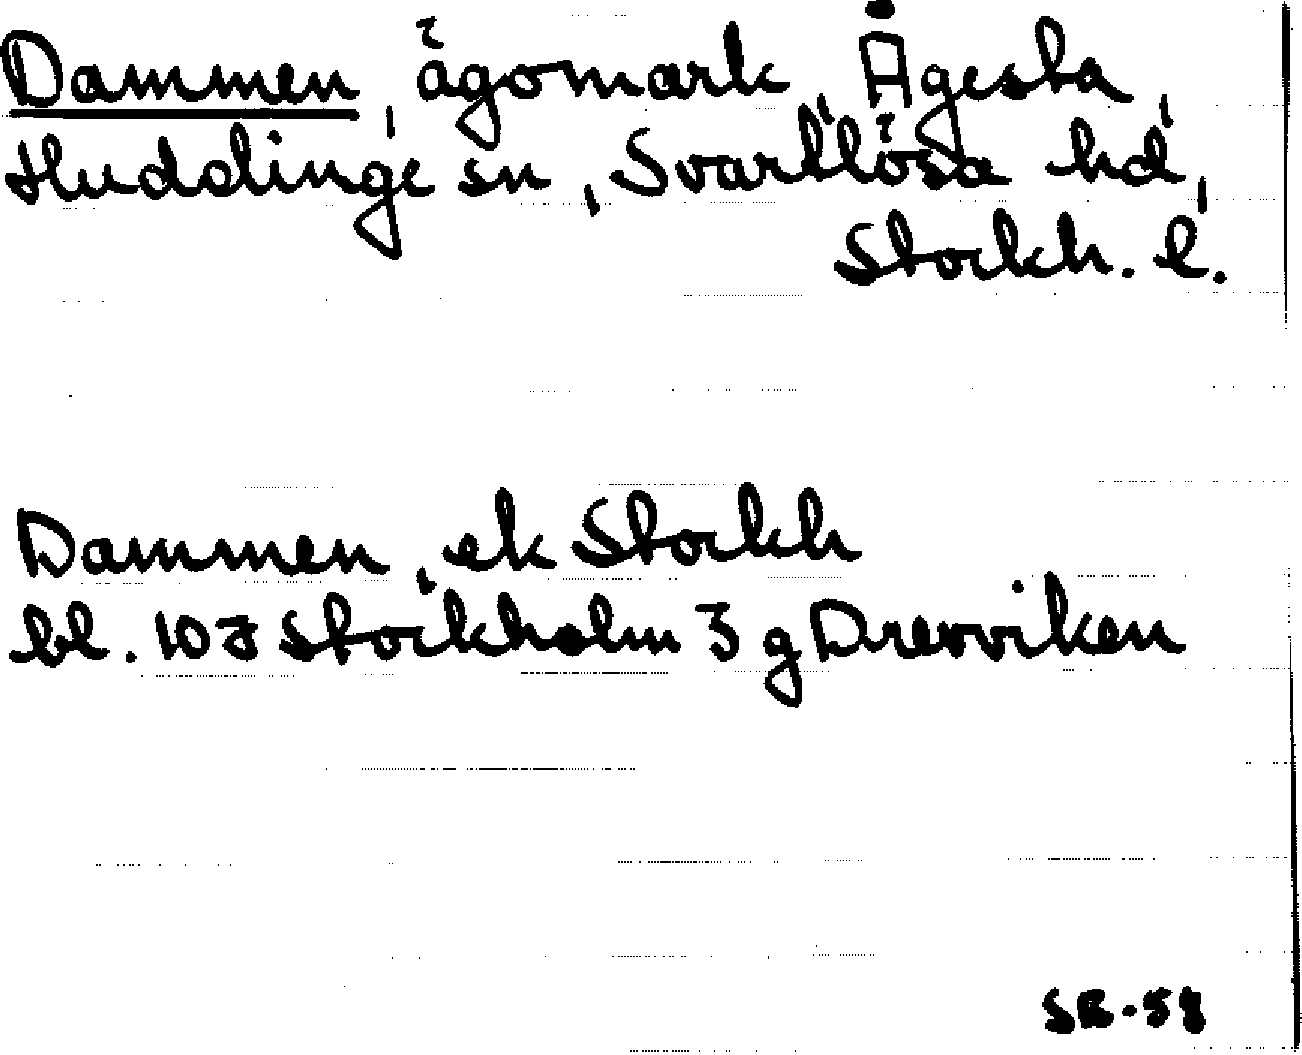 Dammen, ägomark, Ågesta,
Huddinge sn, Svartlösa hd,
Stockh. l.
Dammen, ek Stockh
bl. 10J Stockholm 3 g Drevviken
SR-58